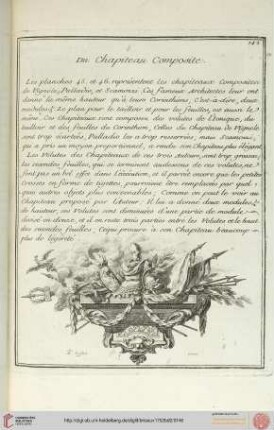 Du Chapiteau Composite.
Les planches 45. et 46. représentent les chapiteaux Composites
de Vignole, Palladio, et Scamozzi. Ces fameux Architectes leur ont
donné la même hauteur qu'à leurs Corinthiens, C'est-à-dire, deux
modules. Le plan pour le tailloir et pour les feuilles, est aussi le
même. Ces Chapiteaux sont composés des volutes de l'Ionique, du
tailloir et des feuilles du Corinthien, Celles du Chapiteau de Vignole
sont trop écartées, Palladio les a trop resserrées, mais Scamozzi,
qui a pris un moyen proportionnel, a rendu son Chapiteau plus élégant.
Les Volutes des Chapiteaux de ces trois Auteurs, sont trop grosses;
les grandes feuilles, qui se terminent au dessous de ces volutes, ne
font pas un bel effet dans l'éxécution, et il paroit encore que les petites
Crosses en forme de tigettes, pourroient être remplacées par quel-
ques autres objets plus convenables; Comme on peut le voir au
Chapiteau proposé par l'Auteur. Il lui a donné deux modules
de hauteur, ses Volutes sont diminuées d'une partie de module,
et il en reste trois parties entre les Volutes et le haut
des grandes feuilles. Ce qui procure à son Chapiteau beaucoup
plus de légéreté.
http://digi.ub.uni-heidelberg.de/diglit/briseux1752bd2/0146